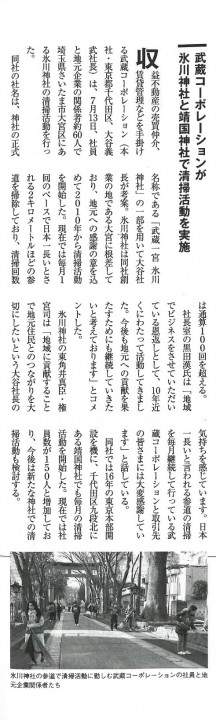 武蔵コーポレーションが
氷川神社と靖国神社で清掃活動を実施
収益不動産の売買仲介、
賃貸管理などを手掛け
る武蔵コーポレーション(本
社・東京都千代田区、大谷義
武社長)は、7月13日、社員
と地元企業の関係者約60人で
埼玉県さいたま市大宮区にあ
る氷川神社の清掃活動を行っ
た。
同社の社名は、神社の正式
名称である「武蔵一宮 氷川
神社」の一部を用いて大谷社
長が考案。氷川神社は同社創
業の地である大宮に根差して
おり、地元への感謝の意を込
めて2010年から清掃活動
を開始した。現在では毎月1
回のペースで日本一長いとさ
れる2キロメートルほどの参
道を掃除しており、清掃回数
は通算100を超える。
社長室の黒田渓氏は「地域
でビジネスをさせていただい
ている恩返しとして、10年近
くにわたって活動してきまし
た。今後も地元への貢献を果
たすためにも継続していきた
いと考えております」とコメ
ントした。
氷川神社の東角井真臣・権
宮司は「地域に貢献すること
で地元住民とのつながりを大
切にしたいという大谷社長の
気持ちを感じています。日本
一長いと言われる参道の清掃
を毎月継続して行っている武
蔵コーポレーションと取引先
の皆さまには大変感謝してい
ます」と話している。
同社では16年の東京本部開
設を機に、千代田区九段北に
ある靖国神社でも毎月の清掃
活動を開始した。現在では社
員数が150人と増加してお
り、今後は新たな神社での清
掃活動も検討する。
氷川神社の参道で清掃活動に勤しむ武蔵コーポレーションの社員と地
元企業関係者たち